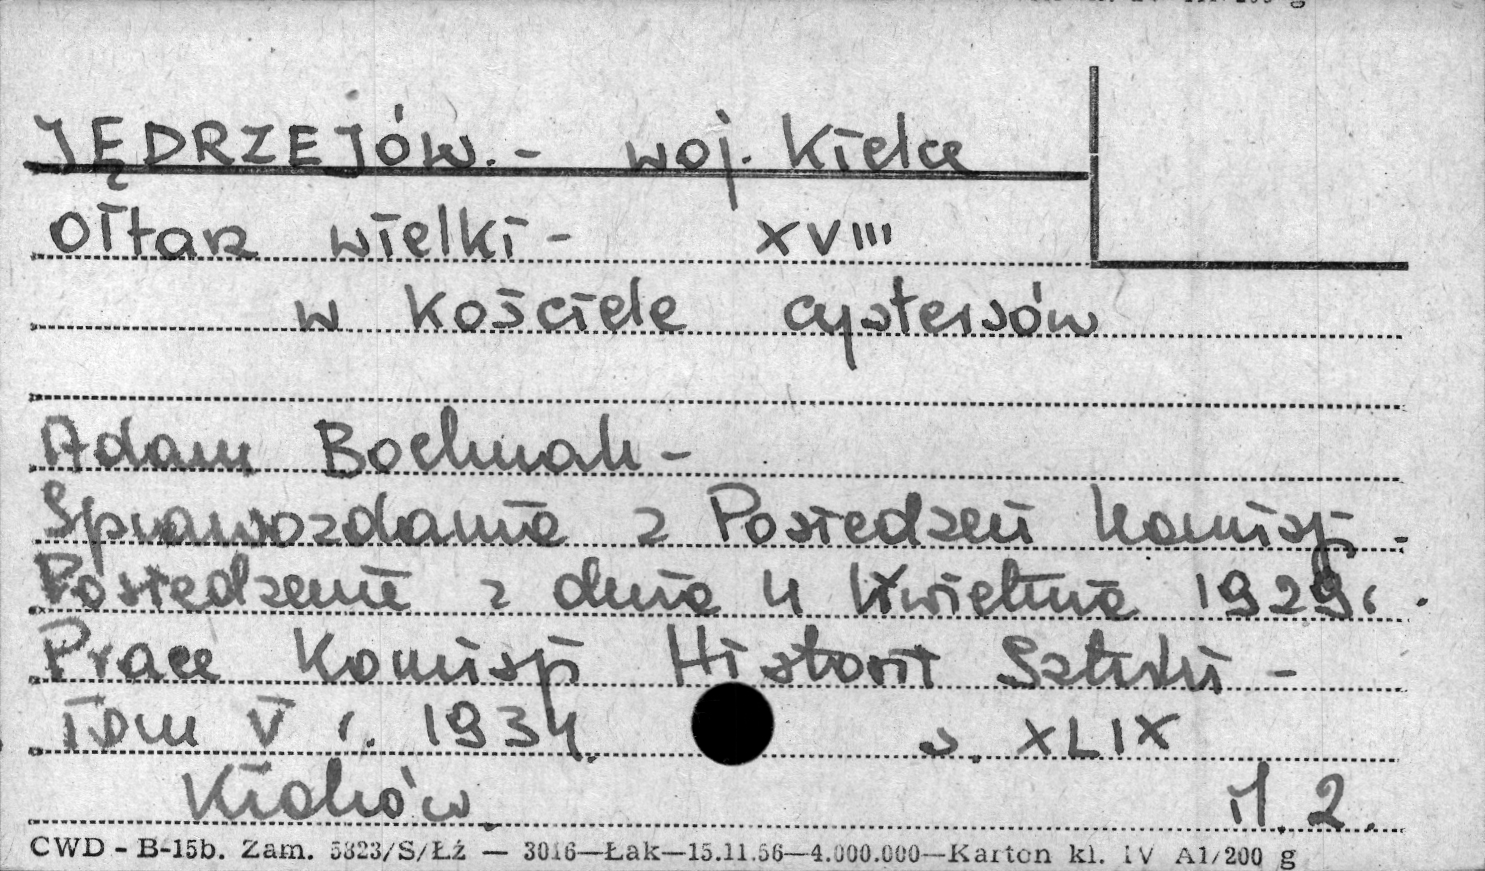 JĘDRZEJÓW. - woj. Kielce
Ołtarz wielki - XVIII
w Kościele cystersów
Adam Bochnak -
Sprawozdania z Posiedzeń Komisji -
Posiedzenie z dnia 4 Kwietnia 1929r.
Prace Komisji Historii Sztuki -
Tom V r. 1934. s. XLIX
Kraków. il. 2.
CWD - B-15b. Zam. 5323/S/Łż — 3016—Łak—15.11.56—4.000.000—Karton kl. IV A1/200 g